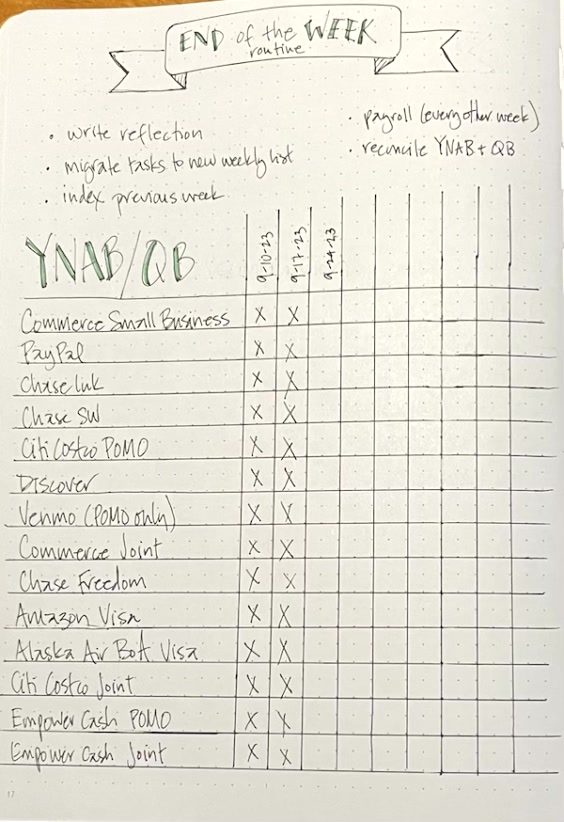 END of the WEEK
routine
• write reflection
• migrate tasks to new weekly list
• index previous week
• payroll (every other week)
• reconcile YNAB + QB
YNAB/QB
9-10-23
9-17-23
9-24-23
Commerce Small Business X X
PayPal X X
Chase Ink X X
Chase SW X X
Citi Costco POMO X X
DISCOVER X X
Venmo (POMO only) X X
Commerce Joint X X
Chase Freedom X X
Amazon Visa X X
Alaska Air BofA Visa X X
Citi Costco Joint X X
Empower Cash POMO X X
Empower Cash Joint X X
17